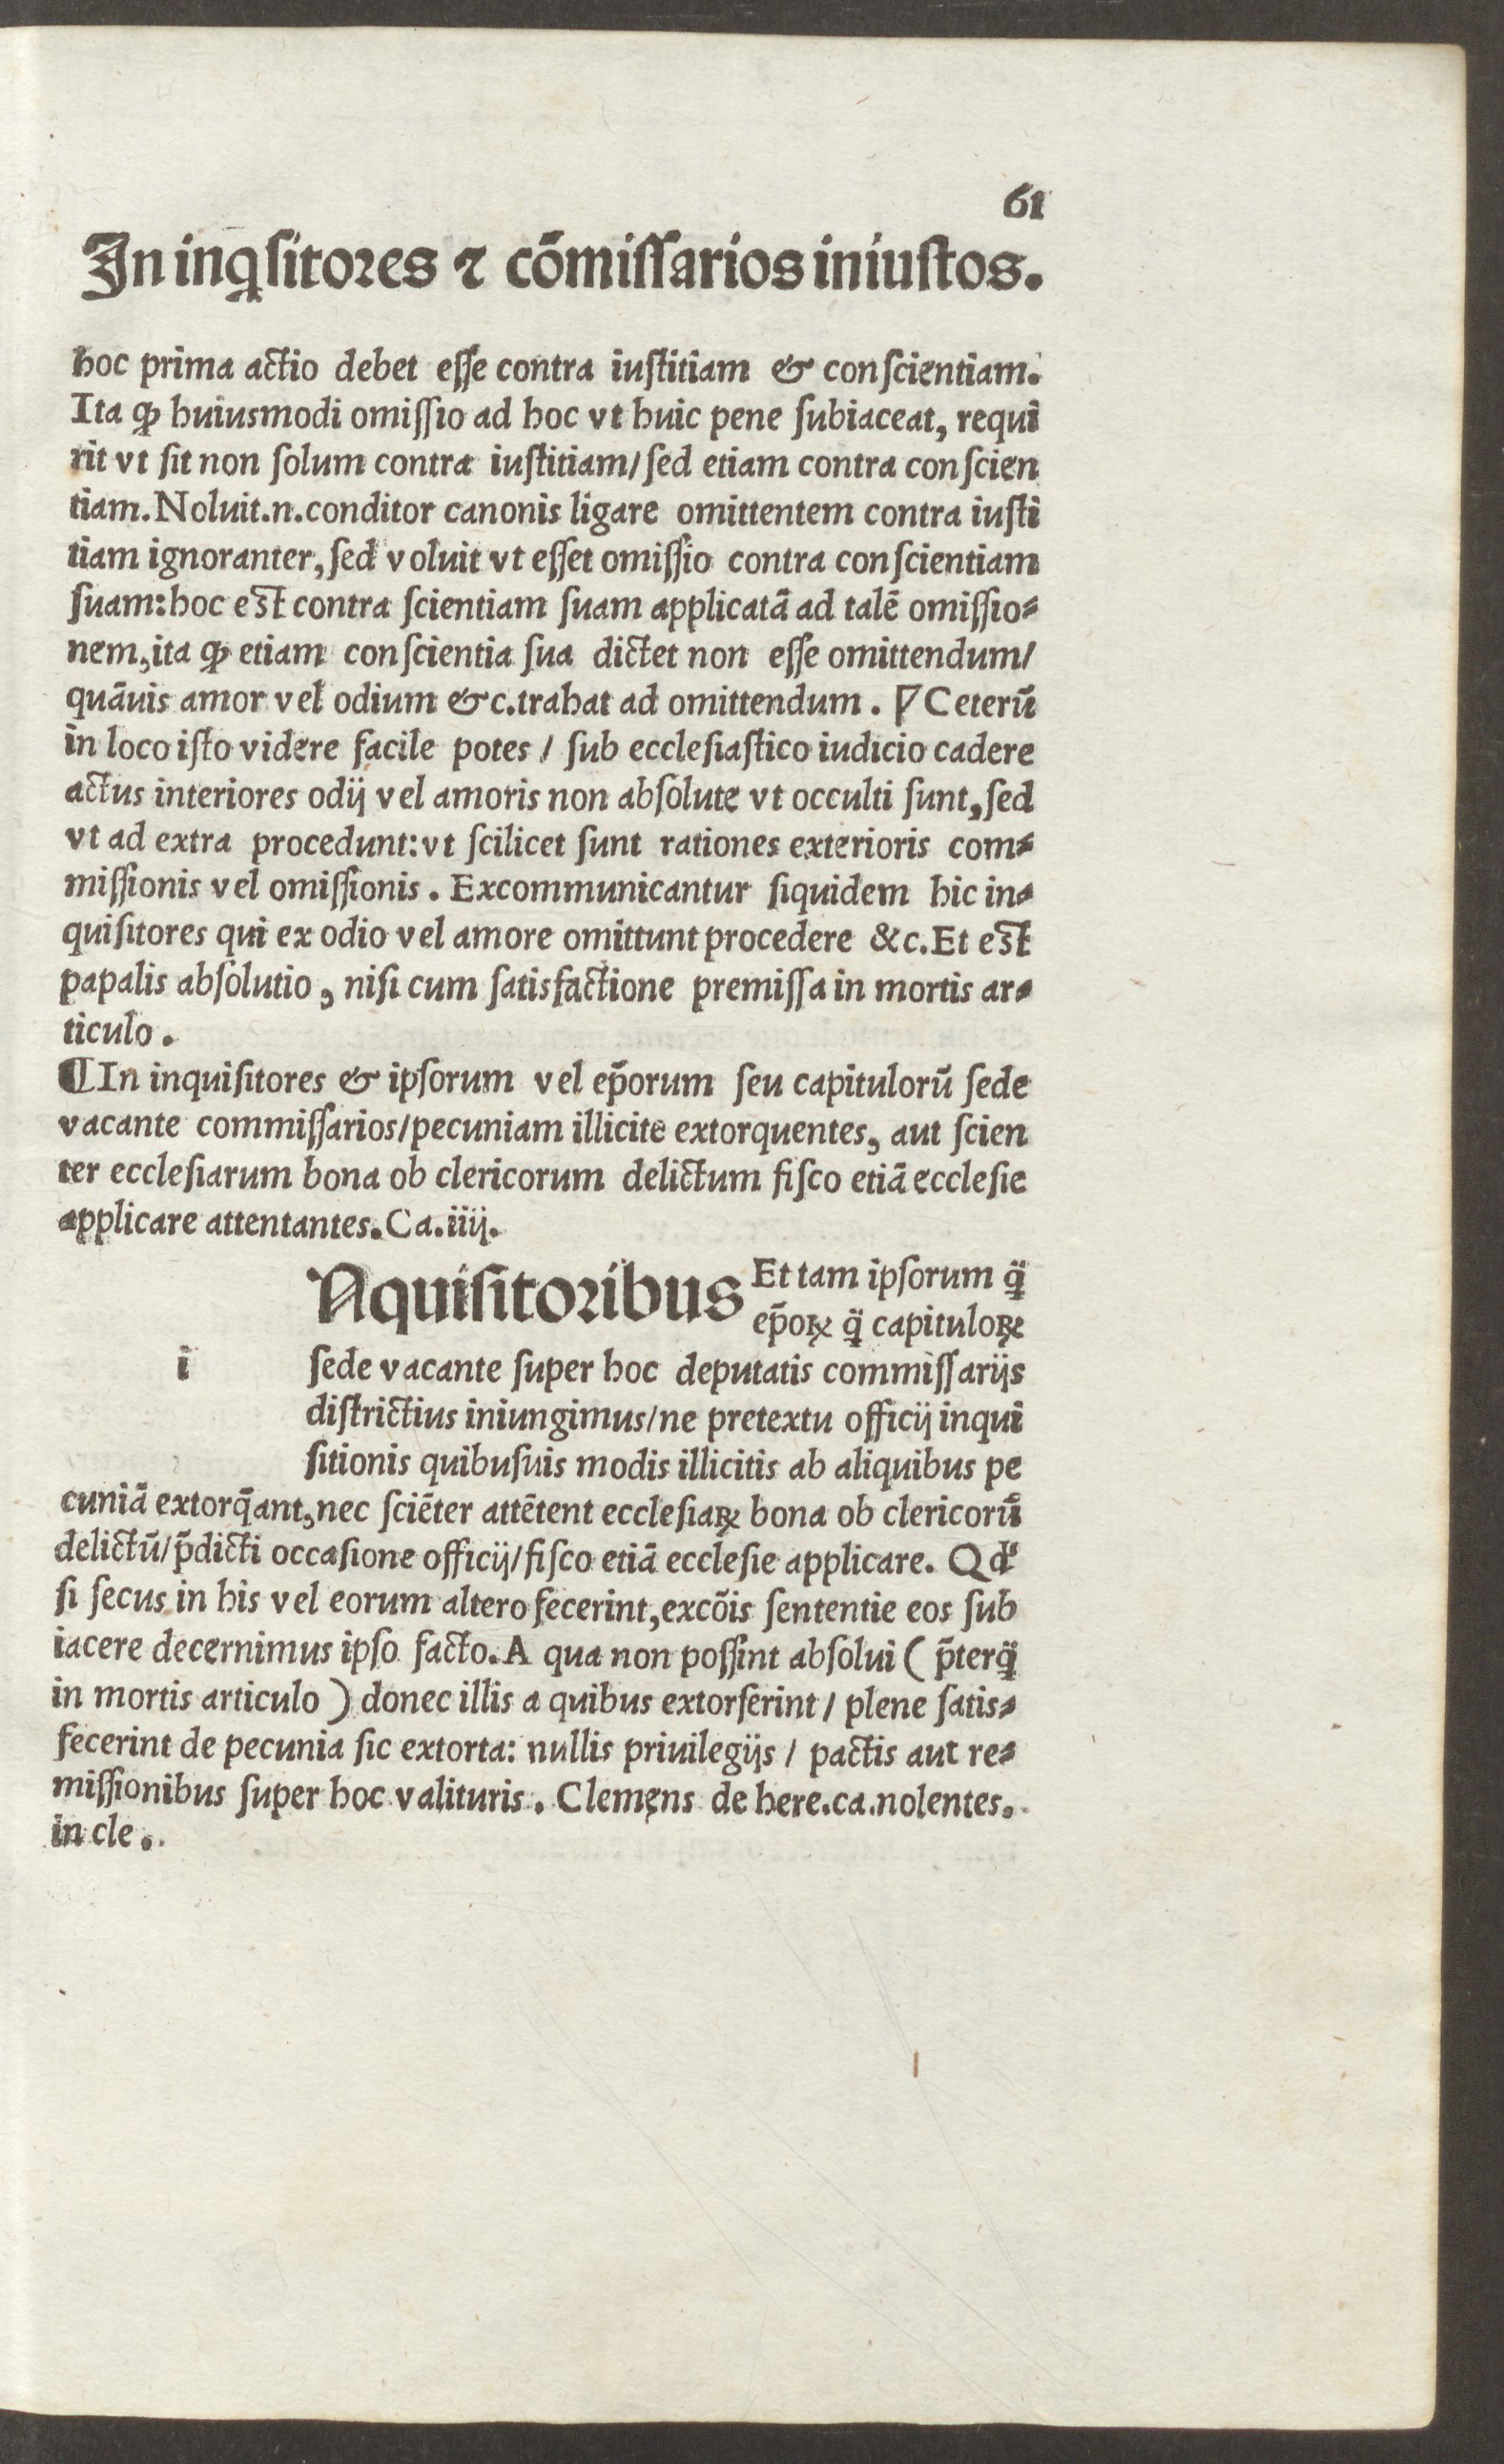 61
In inqͥsitores ⁊ cõmissarios iniustos.
hoc prima actio debet esse contra iustitiam & conscientiam.
Ita ꝙ huiusmodi omissio ad hoc vt huic pene subiaceat, requi
rit vt sit non solum contra iustitiam/sed etiam contra conscien
tiam.Noluit.n.conditor canonis ligare omittentem contra iusti
tiam ignoranter, sed voluit vt esset omissio contra conscientiam
suam:hoc est contra scientiam suam applicatã ad talẽ omissio⸗
nem,ita ꝙ etiam conscientia sua dictet non esse omittendum/
quãuis amor vel odium &c.trahat ad omittendum. ꝟ Ceterũ
in loco isto videre facile potes / sub ecclesiastico iudicio cadere
actus interiores odij vel amoris non absolute vt occulti sunt, sed
vt ad extra procedunt:vt scilicet sunt rationes exterioris com⸗
missionis vel omissionis. Excommunicantur siquidem hic in⸗
quisitores qui ex odio vel amore omittunt procedere &c.Et est
papalis absolutio, nisi cum satisfactione premissa in mortis ar⸗
ticulo.
¶In inquisitores & ipsorum vel ep̃orum seu capitulorũ sede
vacante commissarios/pecuniam illicite extorquentes, aut scien
ter ecclesiarum bona ob clericorum delictum fisco etiã ecclesie
applicare attentantes.Ca.iiij.
Nquisitoribus Et tam ipsorum q̈
ep̃oꝝ q̈ capituloꝝ
i sede vacante super hoc deputatis commissarijs
districtius iniungimus/ne pretextu officij inqui
sitionis quibusuis modis illicitis ab aliquibus pe
cuniã extorq̃ant,nec sciẽter attẽtent ecclesiaꝝ bona ob clericorũ
delictũ/p̃dicti occasione officij/fisco etiã ecclesie applicare. Qđ
si secus in his vel eorum altero fecerint,excõis sententie eos sub
iacere decernimus ipso facto.A qua non possint absolui ( p̃terq̈
in mortis articulo ) donec illis a quibus extorserint / plene satis⸗
fecerint de pecunia sic extorta: nullis priuilegijs / pactis aut re⸗
missionibus super hoc valituris. Clemens de here.ca.nolentes.
in cle.